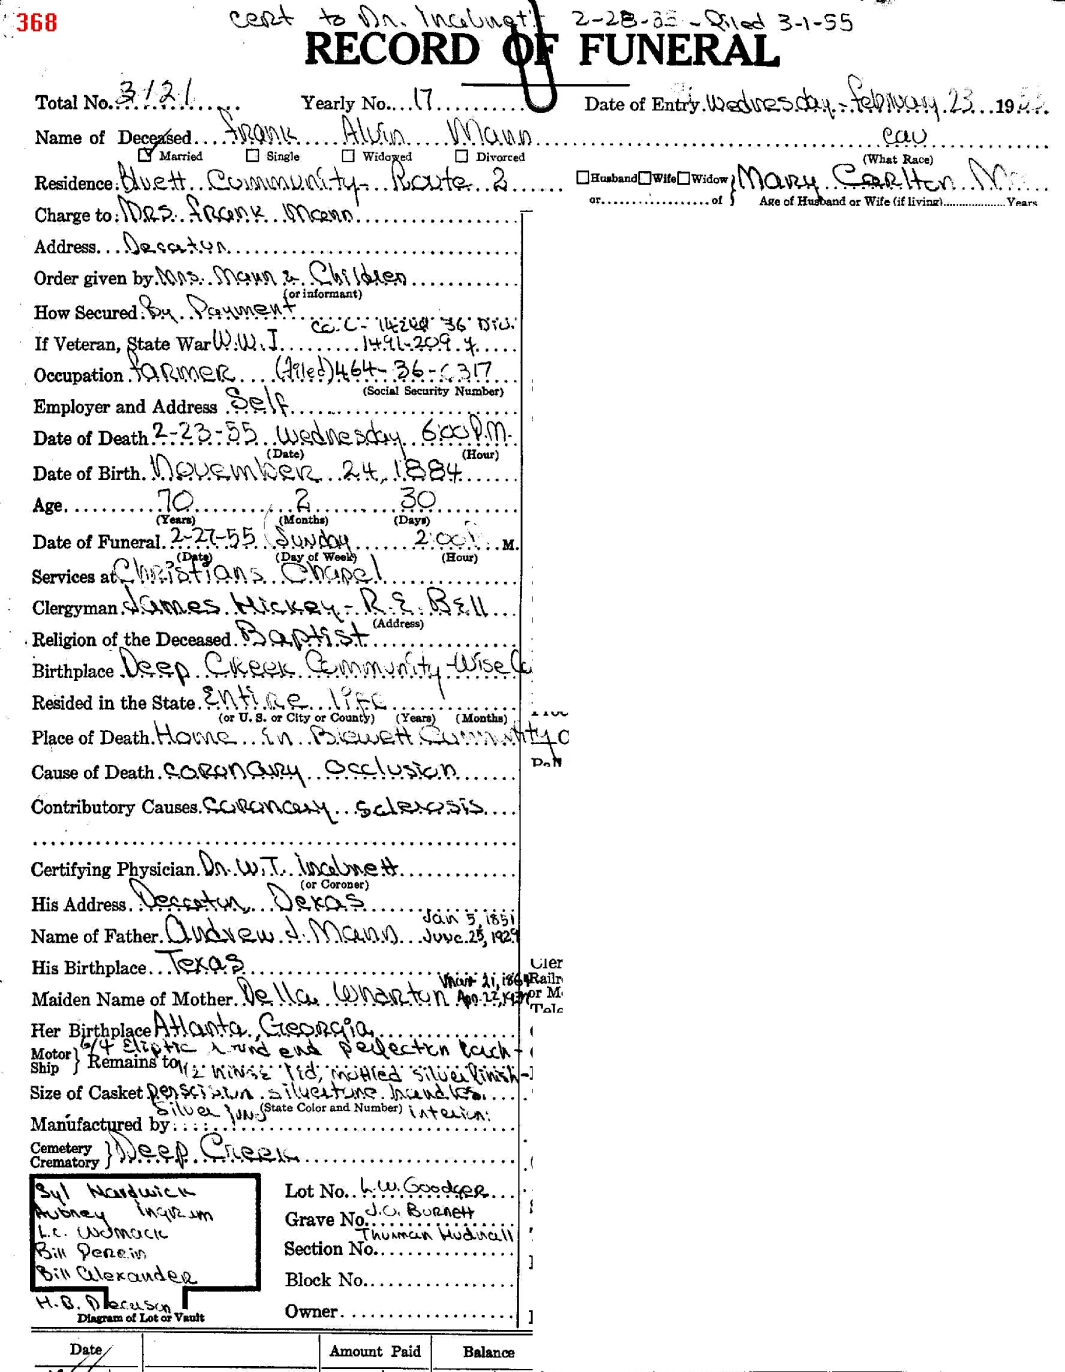 368
cert to Dr. Incabnett 2-28-55 - Filed 3-1-55
RECORD OF FUNERAL
Total No. 3121 Yearly No. 17 Date of Entry Wednesday - February 23 1955
Name of Deceased Frank Alvin Mann cau
Married Single Widowed Divorced (What Race)
Residence Route 2 Husband Wife Widow Mary Carlton
Community
or of Age of Husband or Wife (if living) Years
Charge to Mrs. Frank Mann
Address Decatur
Order given by Mrs. Mann & Children
(or informant)
How Secured By Payment
Co. C - 142nd 36 Div.
If Veteran, State War W.W.I 1491-209.4
Occupation Farmer (Filed) 464-36-6317
(Social Security Number)
Employer and Address Self
Date of Death 2-23-55 Wednesday 6:00 P.M.
(Date) (Hour)
Date of Birth November 24, 1884
Age 70 2 30
(Years) (Months) (Days)
Date of Funeral 2-27-55 Sunday 2:00 M.
(Date) (Day of Week) (Hour)
Services at Christians Chapel
Clergyman James Hickey - R.E. Bell
(Address)
Religion of the Deceased Baptist
Birthplace Deep Creek Community - Wise Co
Resided in the State Entire life
(or U. S. or City or County) (Years) (Months)
Place of Death Home in Community
Cause of Death coronary occlusion
Contributory Causes coronary sclerosis
Certifying Physician Dr. W.T. Incabnett
(or Coroner)
His Address Decatur, Texas
Jan 5, 1851
Name of Father Andrew J. Mann June 25, 1929
His Birthplace Texas
Maiden Name of Mother Della Wharton
Her Birthplace Atlanta, Georgia
6/4 Eliptic round end perfection
Motor Ship Remains to 1/2 hinge lid, mottled silver finish
Size of Casket silvertone handles
Silver (State Color and Number) interior
Manufactured by
Cemetery Crematory Deep Creek
Syl Hardwick
Aubrey Ingram
L.C. Womack
Bill Perrin
Bill Alexander
H.B.
Diagram of Lot or Vault
Lot No. L.W. Goodger
Grave No. J.O. Burnett
Thurman Hudnall
Section No.
Block No.
Owner
Date Amount Paid Balance